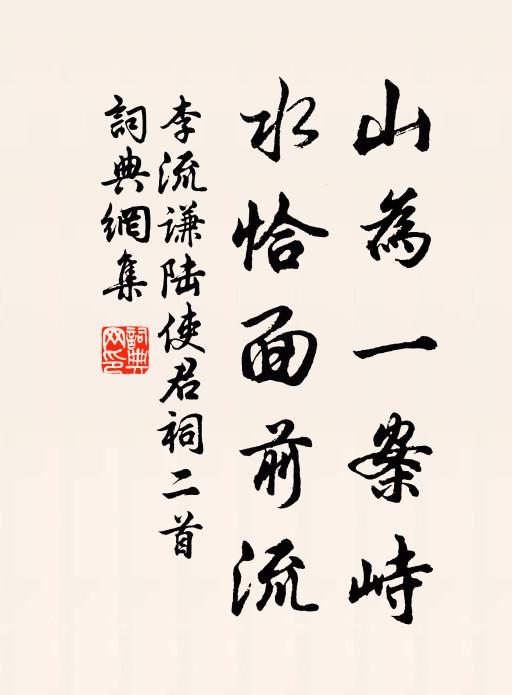 山為一案峙
水恰面前流
李流谦陆使君祠二首
詞典網集
詞典網印